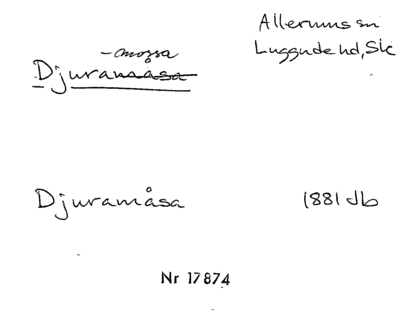 Allerums sn
Luggude hd, Sk
-mossa
Djuramåsa
Djuramåsa
1881 db
Nr 17874